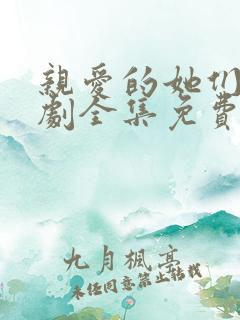 親愛的她们
劇全集免費
九月楓亭
未经同意禁止转载